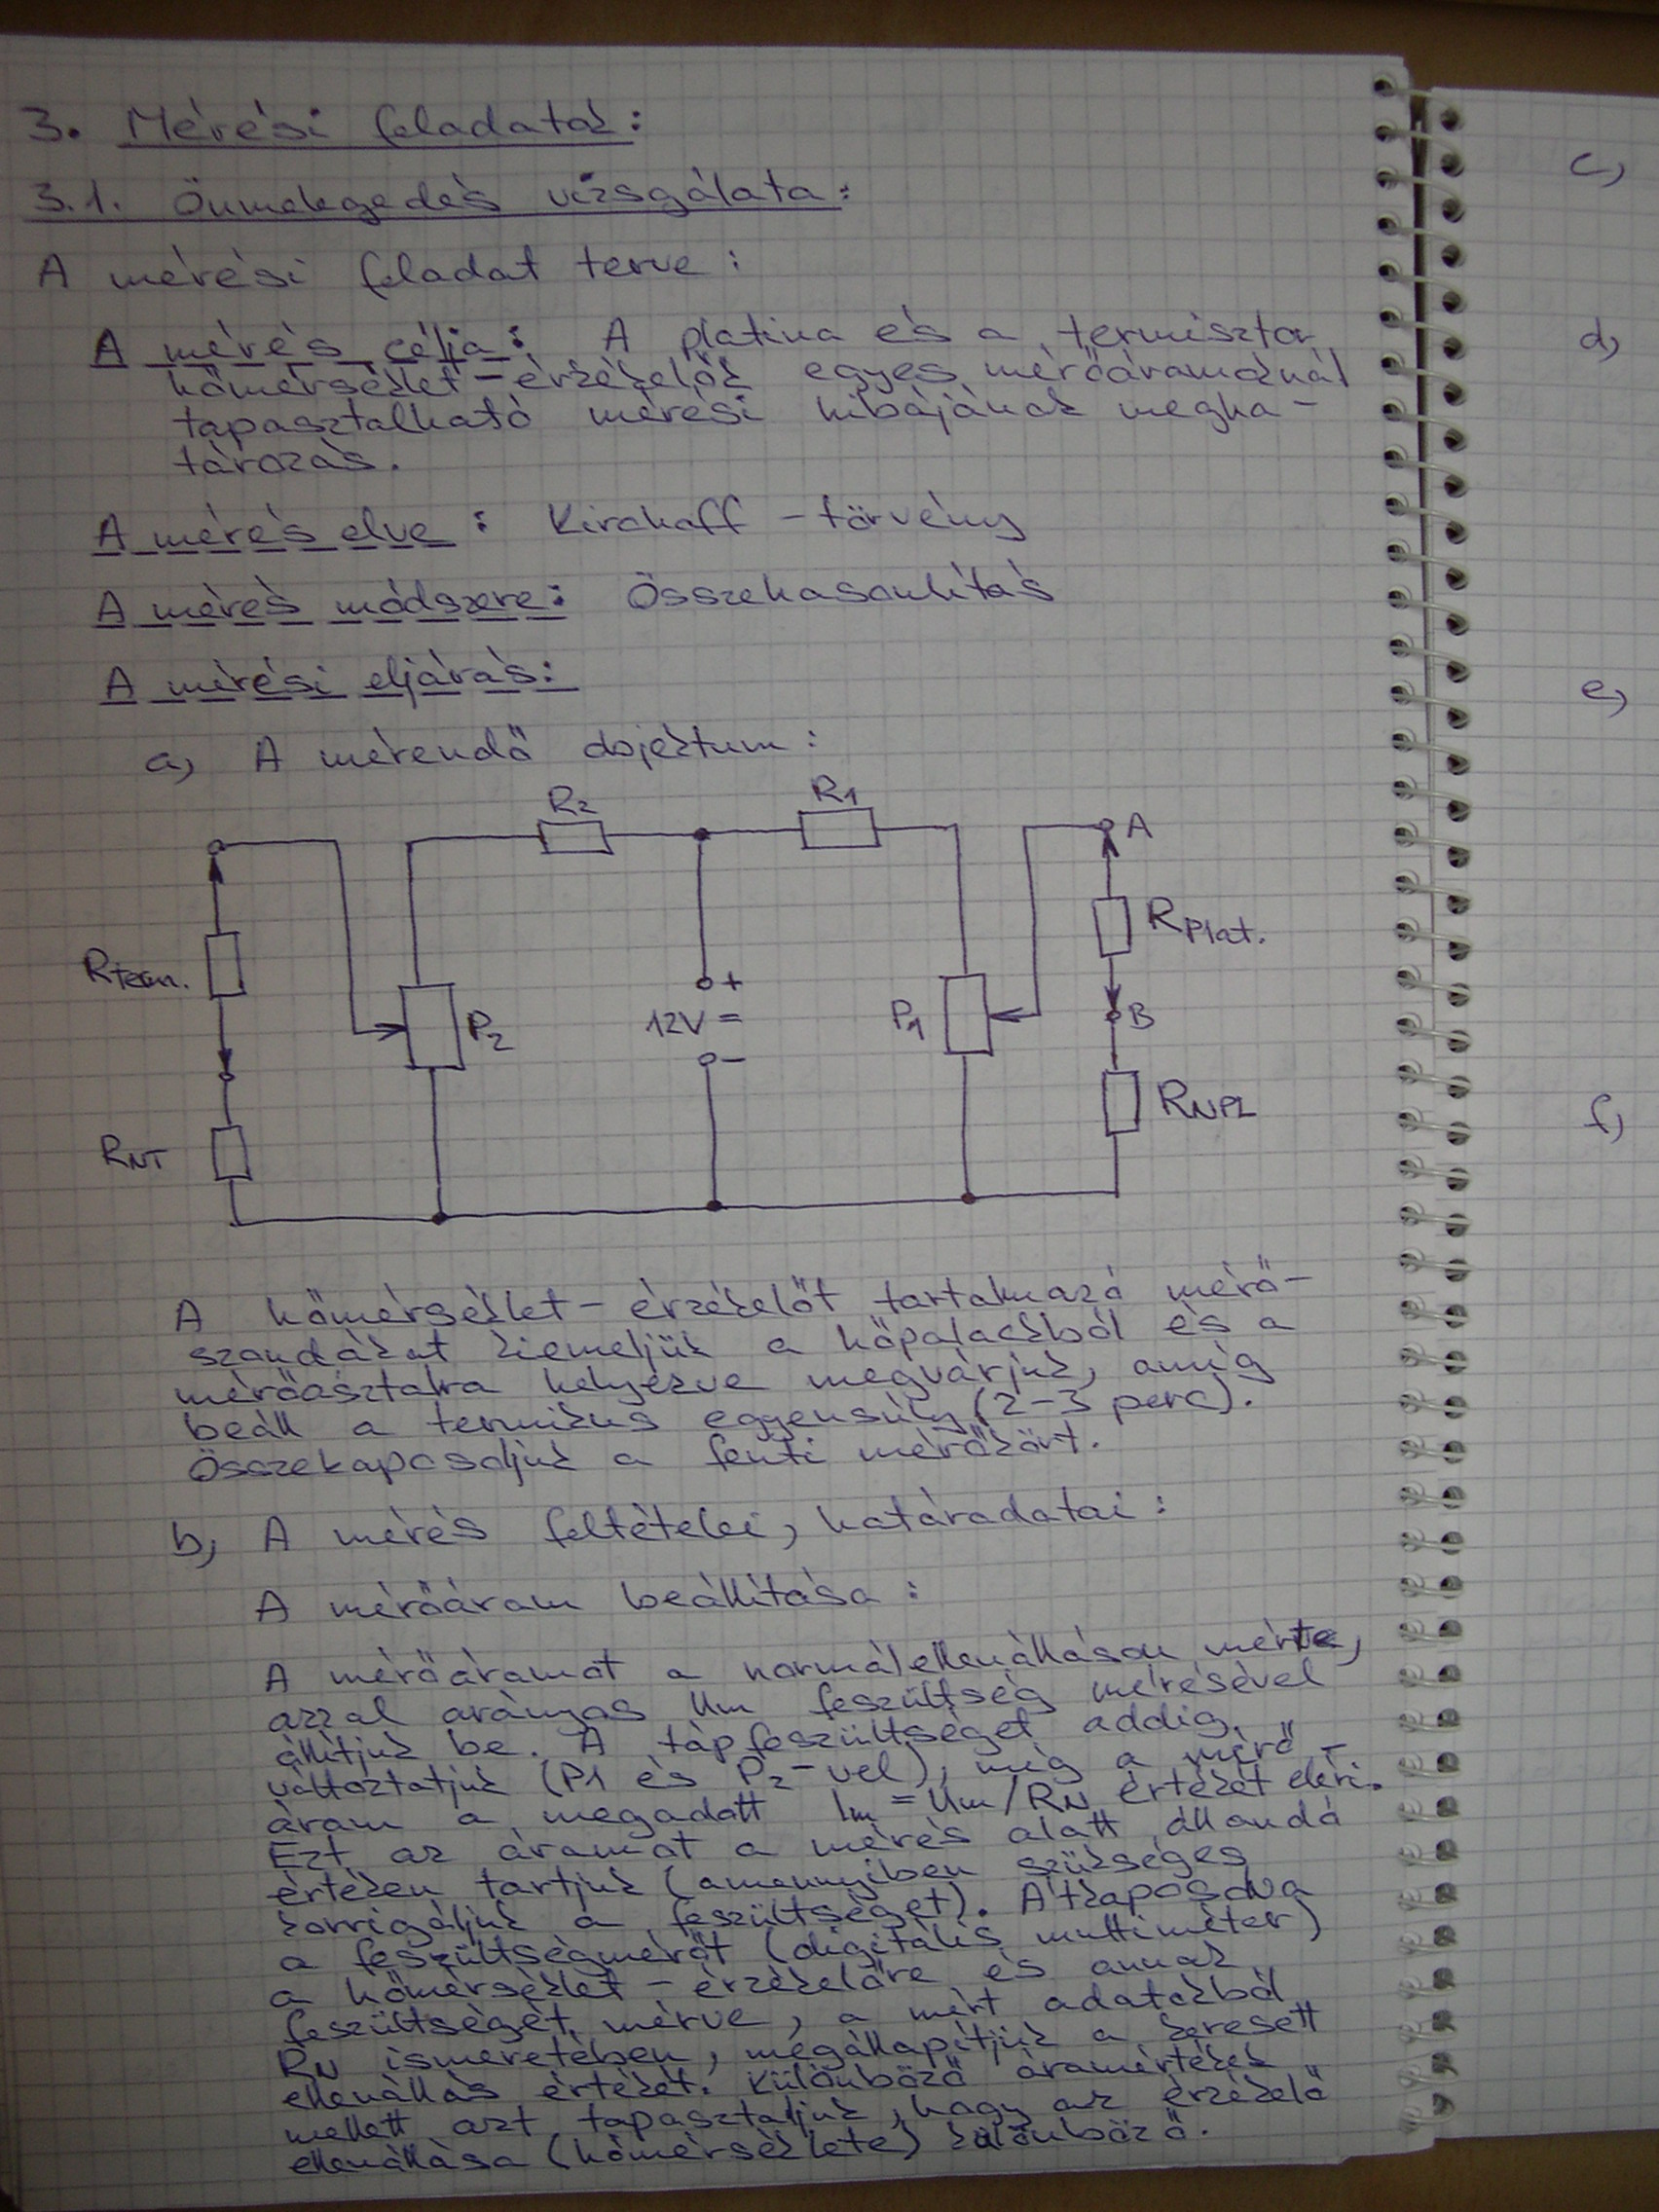 3. Mérési feladatok:
3.1. Önmelegedés vizsgálata:
A mérési feladat terve:
A mérés célja: A platina és a termisztor
hőmérséklet-érzékelők egyes mérőáramoknál
tapasztalható mérési hibájának megha-
tározás.
A mérés elve: Kirchoff-törvény
A mérés módszere: Összehasonlítás
A mérési eljárás:
a, A mérendő objektum:
R2 R1
A
Rterm. P2 12V = + - P1 Rplat.
B
RNT RNPL
A hőmérséklet-érzékelőt tartalmazó mérő-
szondákat kiemeljük a hőpalackból és a
mérőasztalra helyezve megvárjuk, amíg
beáll a termikus egyensúly (2-3 perc).
Összekapcsoljuk a fenti mérőkört.
b, A mérés feltételei, határadatai:
A mérőáram beállítása:
A mérőáramot a normálellenálláson mérve,
azzal arányos Um feszültség mérésével
állítjuk be. A tápfeszültséget addig
változtatjuk (P1 és P2-vel), míg a mérő-
áram a megadott Im = Um/RN értéket eléri.
Ezt az áramot a mérés alatt állandó
értéken tartjuk (amennyiben szükséges
korrigáljuk a feszültséget). Átkapcsolva
a feszültségmérőt (digitális multiméter)
a hőmérséklet-érzékelőre és annak
feszültségét mérve, a mért adatokból
RN ismeretében, megállapítjuk a keresett
ellenállás értékét. Különböző áramértékek
mellett azt tapasztaljuk, hogy az érzékelő
ellenállása (hőmérséklete) különböző.
c,
d,
e,
f,